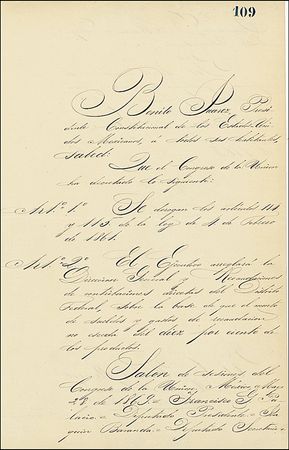 109
Benito Juarez, Presi
dente Constitucional de los Estados Uni
dos Mexicanos, á todos sus habitantes,
sabed:
Que el Congreso de la Union
ha decretado lo siguiente:
Art.º 1.º Se derogan los artículos 114
y 115 de la ley de 4 de Febrero
de 1861.
Art.º 2.º El Ejecutivo arreglará la
Direccion General y Recaudaciones
de contribuciones directas del Distrito
Federal, sobre la base de que el monto
de sueldos y gastos de recaudacion
no esceda del diez por ciento de
los productos.
Salon de sesiones del
Congreso de la Union, México, Mayo
de 1862. Francisco G. Pa
lacio. Diputado Presidente. Joa
quin Baranda. Diputado Secretario.